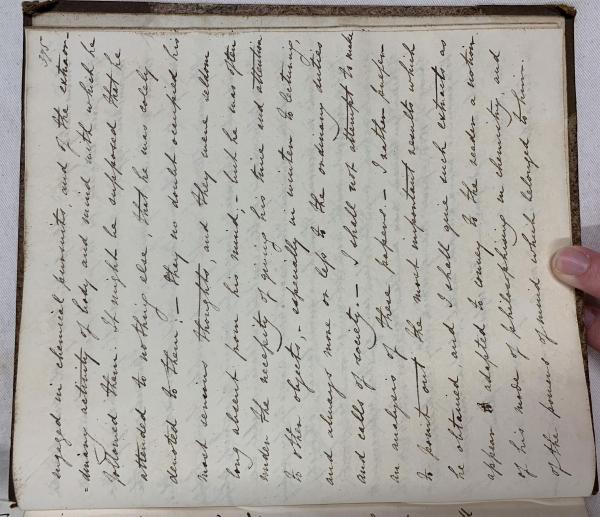 375
engaged in chemical pursuits, and of the extraor-
-dinary activity of body and mind with which he
followed them. It might be supposed that he
attended to nothing else, that he was solely
devoted to them; – they no doubt occupied his
most anxious thoughts, and they were seldom
long absent from his mind; – but he was often
under the necessity of giving his time and attention
to other objects, – especially in winter to lecturing,
and always more or less to the ordinary duties
and calls of society. – I shall not attempt to make
an analysis of these papers. – I rather prefer
to point out the most important results which
he obtained, and I shall give such extracts as
appear adapted to convey to the reader a notion
of his mode of philosophising in chemistry, and
of the powers of mind which belonged to him.